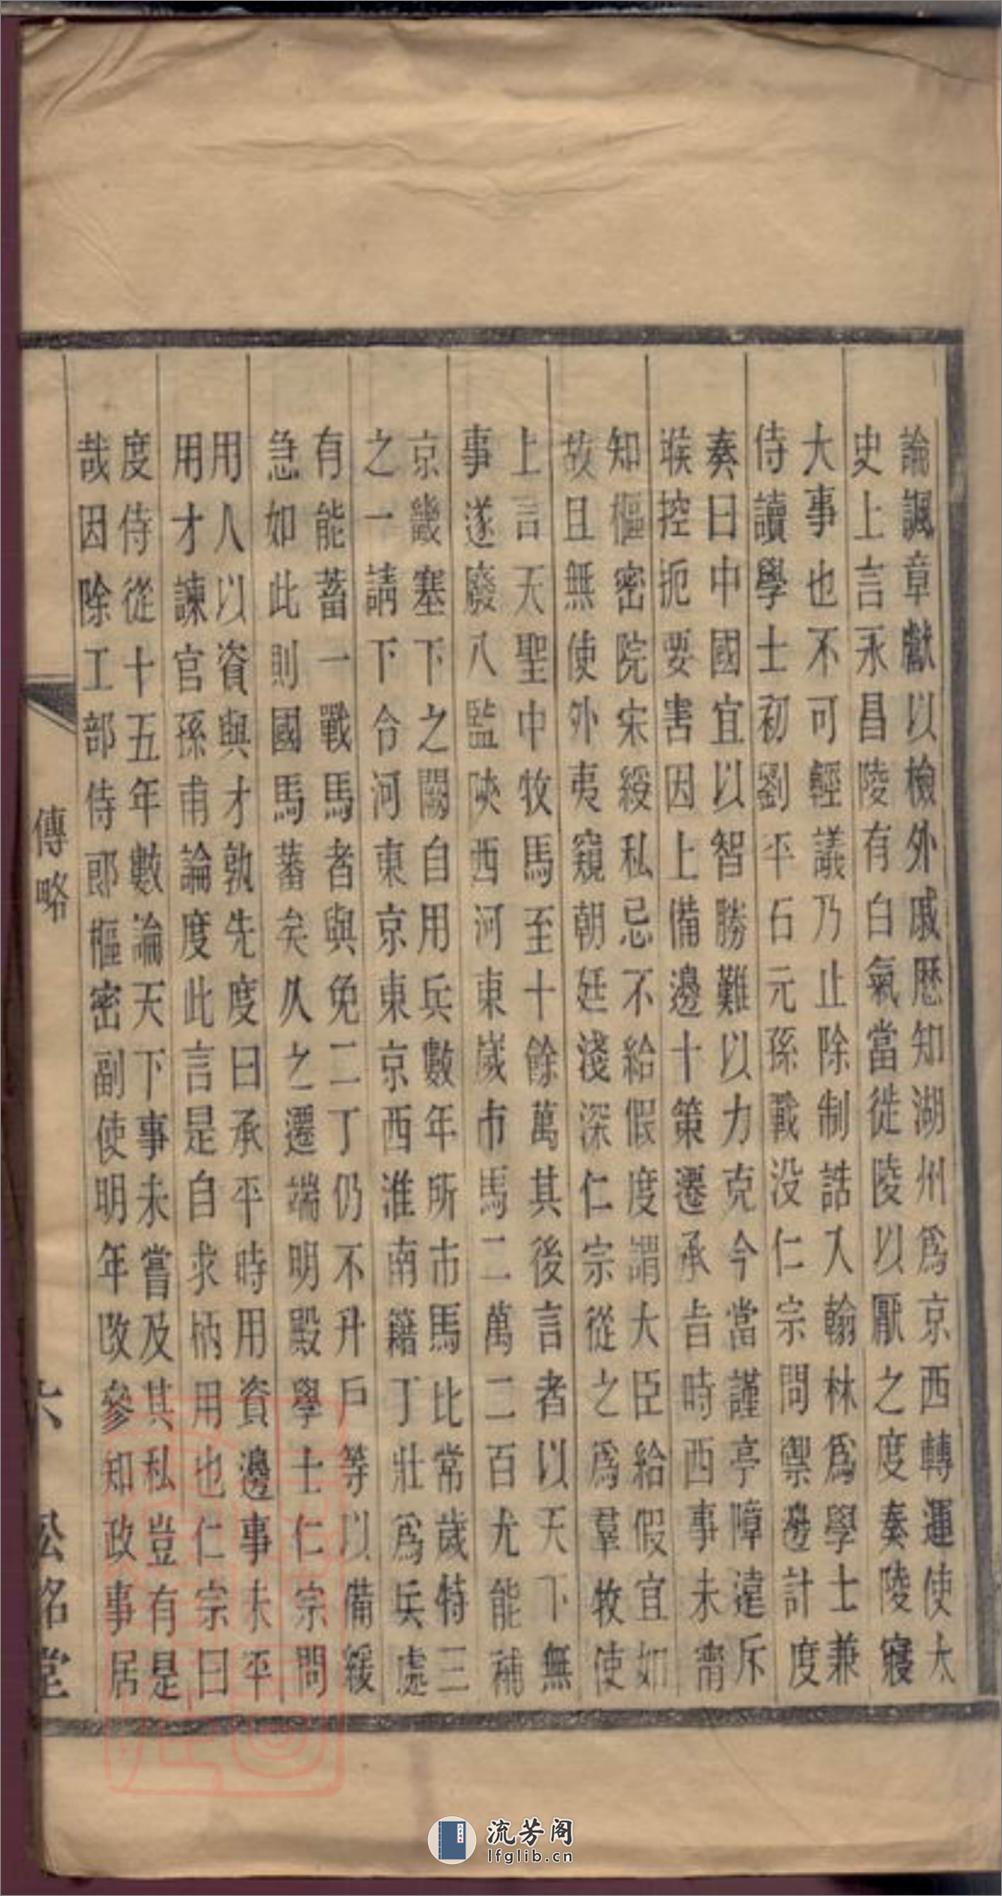 論諷章獻以檢外戚歷知湖州爲京西轉運使太
史上言永昌陵有白氣當徙陵以厭之度奏陵寢
大事也不可輕議乃止除制誥入翰林爲學士兼
侍讀學士初劉平石元孫戰没仁宗問禦邊計度
奏曰中國宜以智勝難以力克今當謹亭障遠斥
堠控扼要害因上備邊十策遷承旨時西事未甯
知樞密院宋綬私忌不給假度謂大臣給假宜如
故且無使外夷窺朝廷淺深仁宗從之爲羣牧使
上言天聖中牧馬至十餘萬其後言者以天下無
事遂廢八監陝西河東歲市馬二萬二百尤能補
京畿塞下之闕自用兵數年所市馬比常歲特三
之一請下令河東京東京西淮南籍丁壯爲兵處
有能蓄一戰馬者與免二丁仍不升戶等以備緩
急如此則國馬蕃矣久之遷端明殿學士仁宗問
用人以資與才孰先度曰承平時用資邊事未平
用才諫官孫甫論度此言是自求柄用也仁宗曰
度侍從十五年數論天下事未嘗及其私豈有是
哉因除工部侍郎樞密副使明年改參知政事居
傳略
六
松銘堂
流芳阁
lfglib.cn